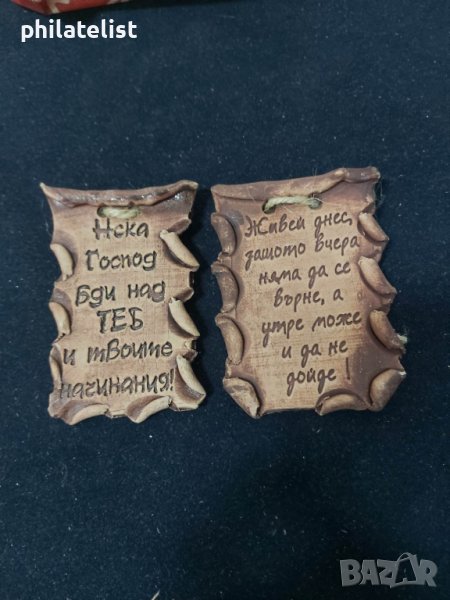 philatelist
Нека
Господ
бди над
ТЕБ
и твоите
начинания!
Живей днес,
защото вчера
няма да се
върне, а
утре може
и да не
дойде!
BAZAR